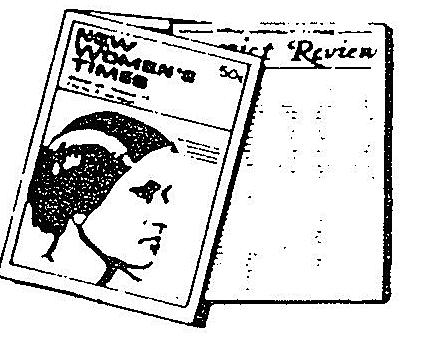 NEW
WOMEN'S
TIMES
50¢
Review